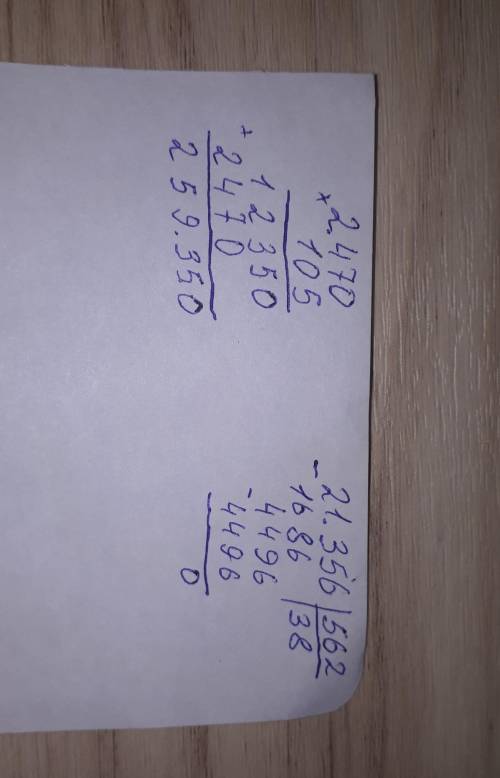 × 2.470
105
12350
+ 2470
259.350
- 21.356 | 562
1686 | 38
- 4496
4496
0